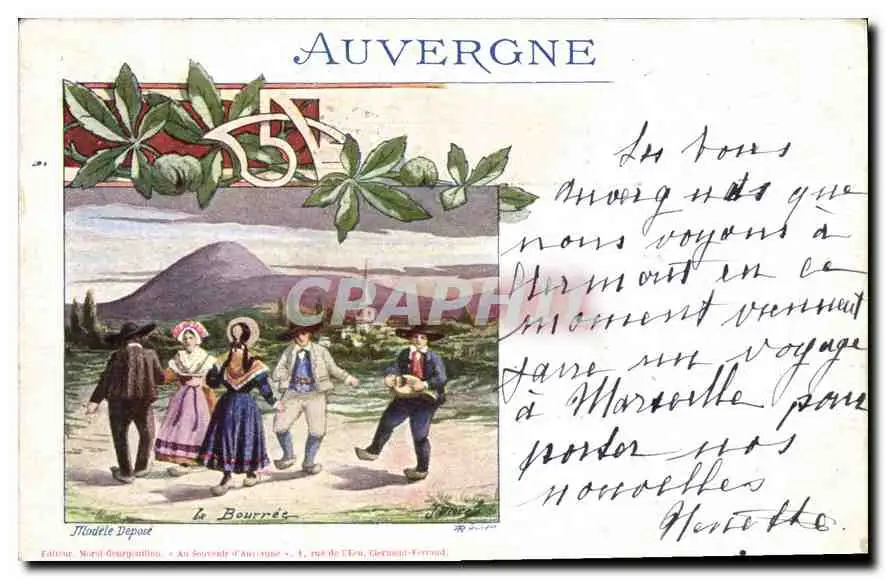 AUVERGNE
Les bons
Auvergnats que
nous voyons à
Clermont en ce
moment viennent
faire un voyage
à Marseille pour
porter nos
nouvelles
CRAPHIL
La Bourrée
Modèle Déposé
Editeur, Morel-Gourgouillon, « Au Souvenir d'Auvergne », 4, rue de l'Ecu, Clermont-Ferrand.